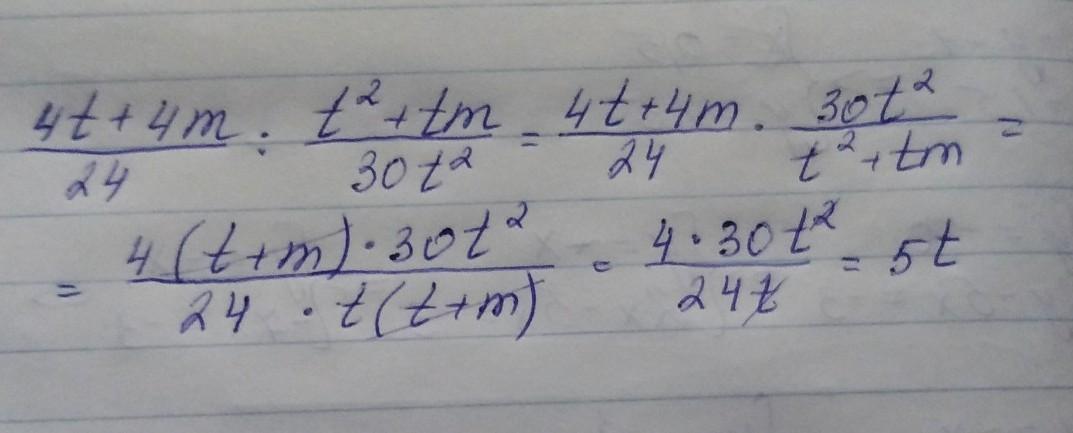 \frac{4t+4m}{24} : \frac{t^2+tm}{30t^2} = \frac{4t+4m}{24} \cdot \frac{30t^2}{t^2+tm} =
= \frac{4(t+m) \cdot 30t^2}{24 \cdot t(t+m)} = \frac{4 \cdot 30t^2}{24t} = 5t